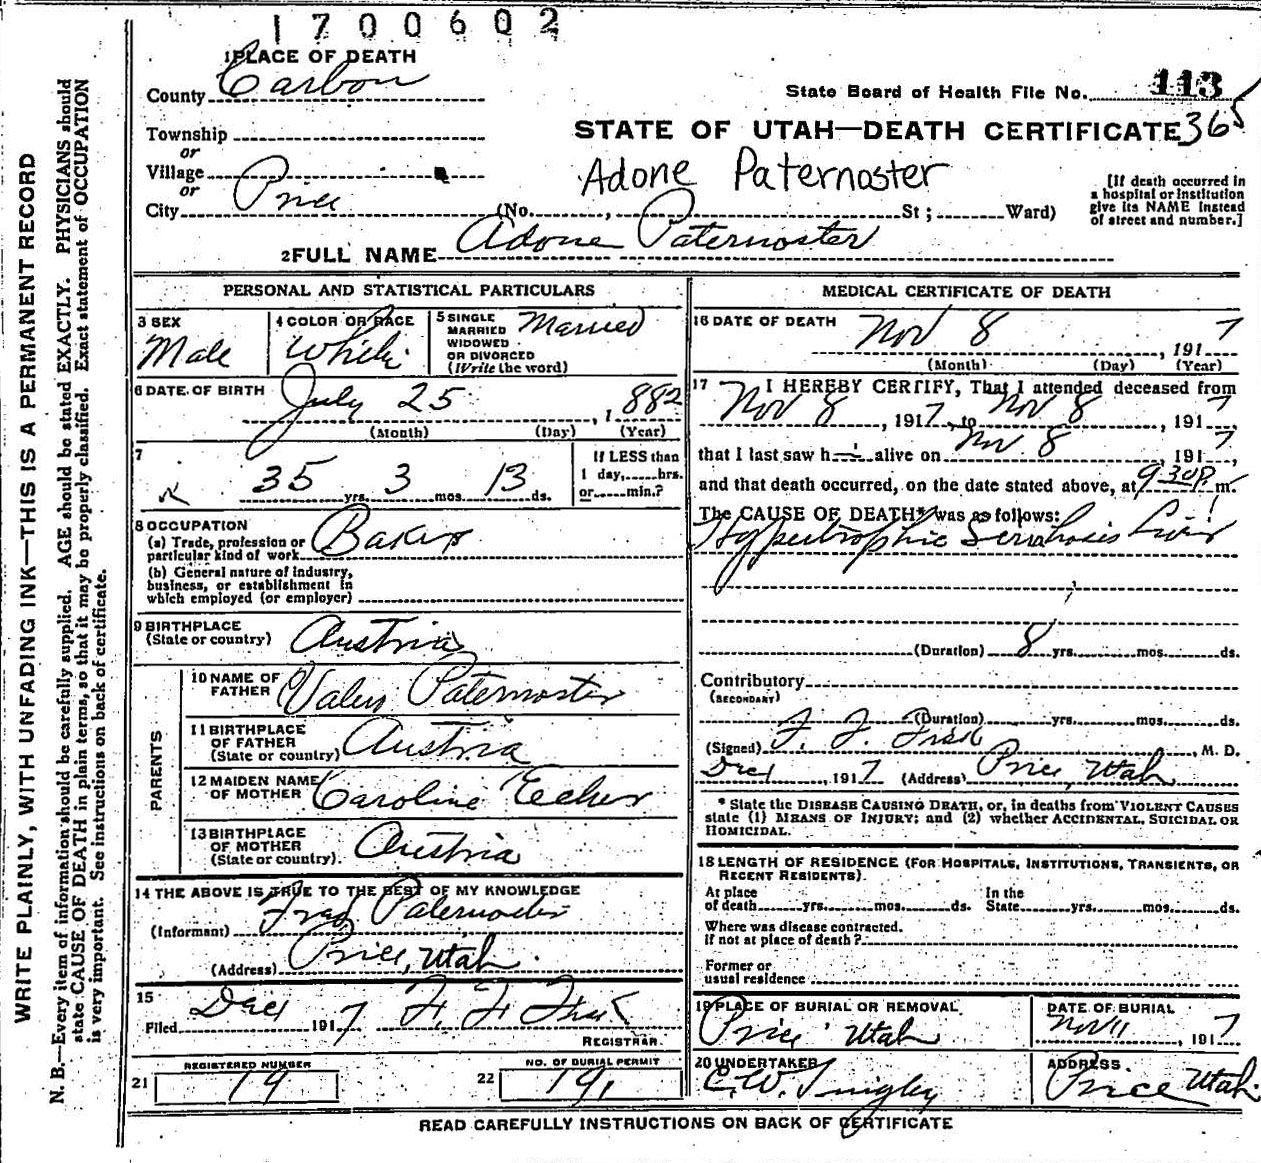 1700602
1 PLACE OF DEATH
County Carbon
State Board of Health File No. 113
Township
or
Village
or
City Price
STATE OF UTAH—DEATH CERTIFICATE 365
Adone Paternoster
(No. , St ; Ward)
[If death occurred in
a hospital or institution
give its NAME instead
of street and number.]
2 FULL NAME Adone Paternoster
PERSONAL AND STATISTICAL PARTICULARS
3 SEX
Male
4 COLOR OR RACE
White
5 SINGLE
MARRIED
WIDOWED
OR DIVORCED
(Write the word)
Married
6 DATE OF BIRTH
July 25, 1882
(Month) (Day) (Year)
7
35 yrs. 3 mos. 13 ds.
If LESS than
1 day, hrs.
or min.?
8 OCCUPATION
(a) Trade, profession or
particular kind of work Baker
(b) General nature of industry,
business, or establishment in
which employed (or employer)
9 BIRTHPLACE
(State or country) Austria
PARENTS
10 NAME OF
FATHER Paternoster
11 BIRTHPLACE
OF FATHER
(State or country) Austria
12 MAIDEN NAME
OF MOTHER Caroline Eccher
13 BIRTHPLACE
OF MOTHER
(State or country). Austria
14 THE ABOVE IS TRUE TO THE BEST OF MY KNOWLEDGE
(Informant) Paternoster
(Address) Price, Utah.
15
Filed Dec 1 1917 F. F. Fisk
REGISTRAR.
REGISTERED NUMBER
21 19
NO. OF BURIAL PERMIT
22 191
MEDICAL CERTIFICATE OF DEATH
16 DATE OF DEATH
Nov 8, 1917
(Month) (Day) (Year)
17 I HEREBY CERTIFY, That I attended deceased from
Nov 8, 1917, to Nov 8, 1917,
that I last saw h i alive on Nov. 8, 1917,
and that death occurred, on the date stated above, at 9 30 P. m.
The CAUSE OF DEATH* was as follows:
Hypertrophic Serrhosis Liver
(Duration) 8 yrs. mos. ds.
Contributory
(SECONDARY)
(Duration) yrs. mos. ds.
(Signed) F. F. Fisk, M. D.
Dec 1, 1917 (Address) Price, Utah
* State the DISEASE CAUSING DEATH, or, in deaths from VIOLENT CAUSES
state (1) MEANS OF INJURY; and (2) whether ACCIDENTAL, SUICIDAL OR
HOMICIDAL.
18 LENGTH OF RESIDENCE (FOR HOSPITALS, INSTITUTIONS, TRANSIENTS, OR
RECENT RESIDENTS).
At place
of death yrs. mos. ds.
In the
State yrs. mos. ds.
Where was disease contracted.
If not at place of death?
Former or
usual residence
19 PLACE OF BURIAL OR REMOVAL
Price Utah
DATE OF BURIAL
Nov 11, 1917
20 UNDERTAKER
ADDRESS.
Price Utah.
READ CAREFULLY INSTRUCTIONS ON BACK OF CERTIFICATE
WRITE PLAINLY, WITH UNFADING INK—THIS IS A PERMANENT RECORD
N. B.—Every item of information should be carefully supplied. AGE should be stated EXACTLY. PHYSICIANS should
state CAUSE OF DEATH in plain terms, so that it may be properly classified. Exact statement of OCCUPATION
is very important. See instructions on back of certificate.